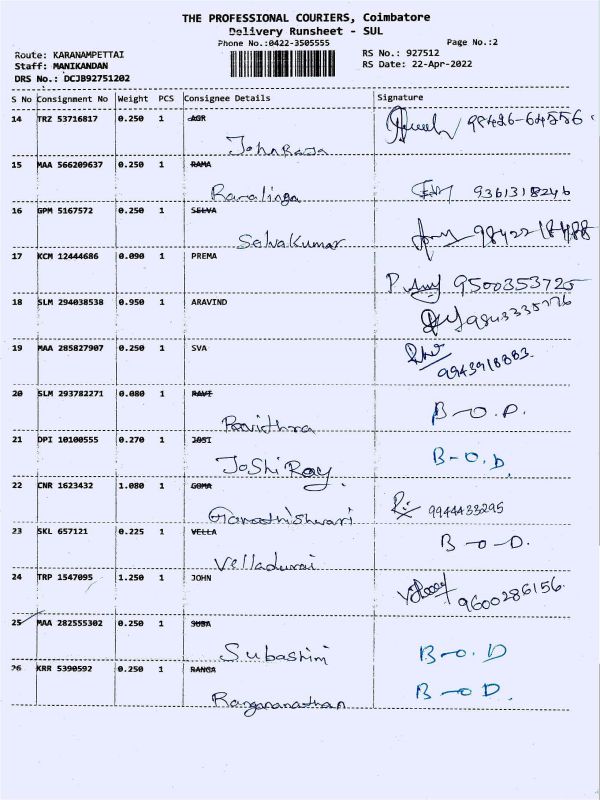 THE PROFESSIONAL COURIERS, Coimbatore
Delivery Runsheet - SUL
Phone No.:0422-3505555 Page No.:2
Route: KARANAMPETTAI RS No.: 927512
Staff: MANIKANDAN RS Date: 22-Apr-2022
DRS No.: DCJB92751202
S No Consignment No Weight PCS Consignee Details Signature
14 TRZ 53716817 0.250 1 AGR 98426-64556
John Raja
15 MAA 566209637 0.250 1 RAMA
Ramalinga 9361318246
16 GPM 5167572 0.250 1 SELVA
Selvakumar 9842218488
17 KCM 12444686 0.090 1 PREMA
9500353725
18 SLM 294038538 0.950 1 ARAVIND 9843335776
19 MAA 285827907 0.250 1 SVA
9943918883
20 SLM 293782271 0.080 1 RAVI B-O.D.
Pavithra
21 DPI 10100555 0.270 1 JOSI B-O.D
Joshi Roy
22 CNR 1623432 1.080 1 GOMA
9944433295
23 SKL 657121 0.225 1 VELLA B-O-D.
Velladurai
24 TRP 1547095 1.250 1 JOHN
9600286156
25 MAA 282555302 0.250 1 SUBA
Subashini B-O.D
26 KRR 5390592 0.250 1 RANGA B-O D.
Ranganathan